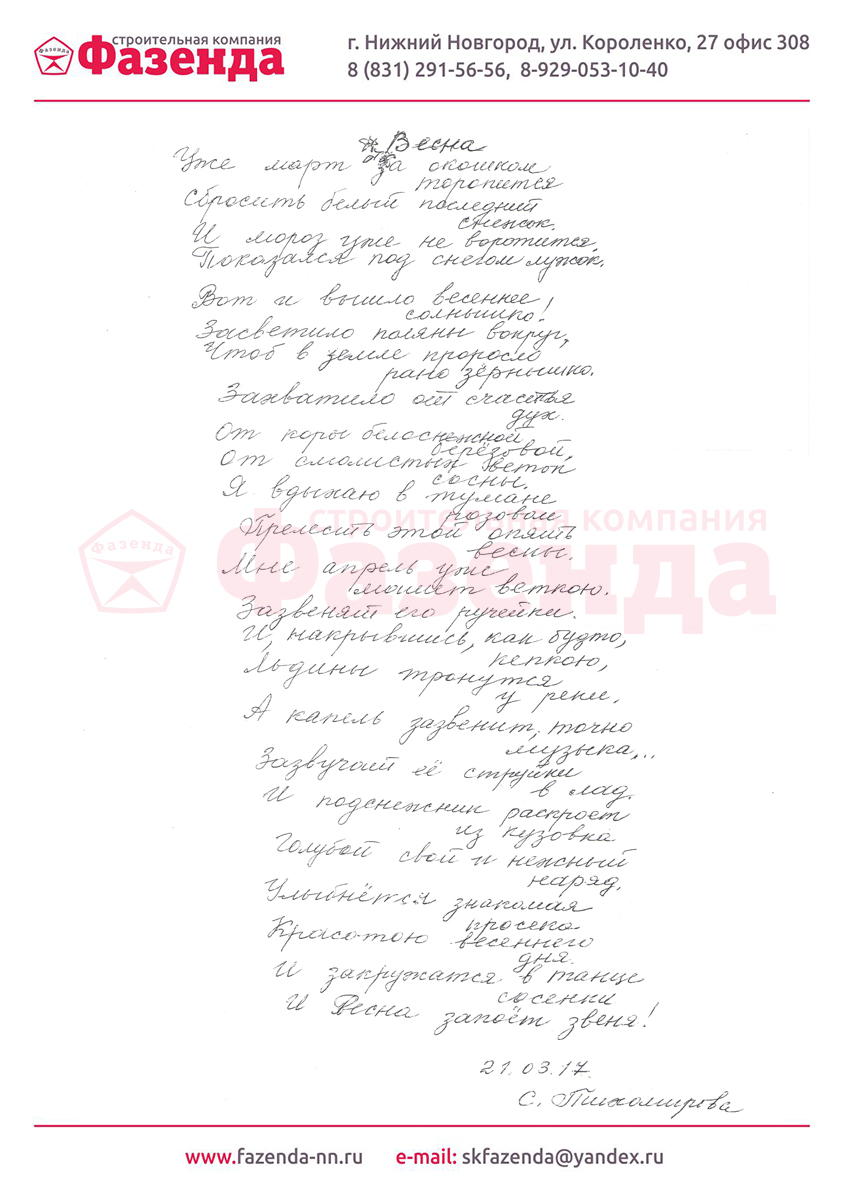 строительная компания
Фазенда
Фазенда
г. Нижний Новгород, ул. Короленко, 27 офис 308
8 (831) 291-56-56, 8-929-053-10-40
Весна
Уже март за окошком
торопится
Сбросить белый последний
снежок.
И мороз уже не воротится,
Показался под снегом лужок.
Вот и вышло весеннее
солнышко!
Засветило поляны вокруг,
Чтоб в земле проросло
рано зёрнышко.
Захватило от счастья
дух.
От коры белоснежной
берёзовой,
От смолистых веток
сосны.
Я вдыхаю в тумане
розовом
Прелесть этой опять
весны.
Мне апрель уже
машет веткою.
Зазвенят его ручейки.
И, накрывшись, как будто,
кепкою,
Льдины тронутся
у реки.
А капель зазвенит, точно
музыка,..
Зазвучат её струйки
в лад.
И подснежник раскроет
из кузовка
Голубой свой и нежный
наряд.
Улыбнётся знакомая
просека
Красотою весеннего
дня.
И закружатся в танце
сосенки
И Весна запоёт звеня!
21.03.17.
С. Тихомирова
строительная компания
Фазенда
Фазенда
www.fazenda-nn.ru e-mail: skfazenda@yandex.ru